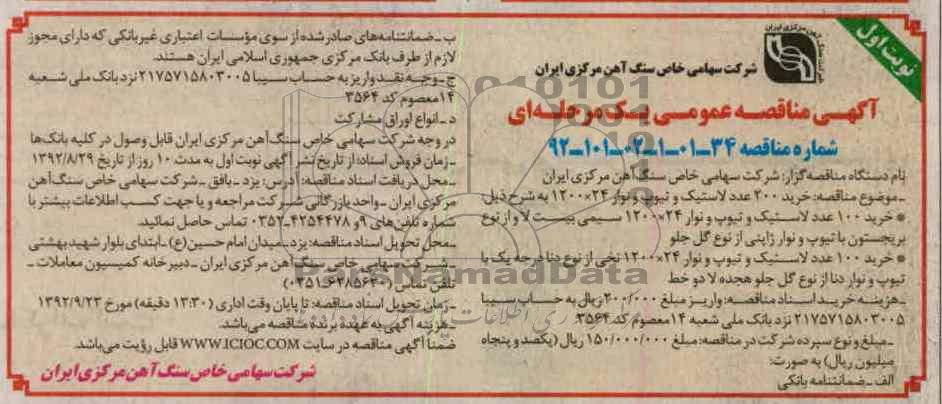 نوبت اول
شرکت سهامی خاص سنگ آهن مرکزی ایران
آگهی مناقصه عمومی یک مرحله‌ای
شماره مناقصه ۳۴-۰۱-۱-۰۲-۱۰۱-۹۲
نام دستگاه مناقصه گزار: شرکت سهامی خاص سنگ آهن مرکزی ایران
ـ موضوع مناقصه: خرید ۲۰۰ عدد لاستیک و تیوپ و نوار ۲۴×۱۲۰۰ به شرح ذیل:
* خرید ۱۰۰ عدد لاستیک و تیوپ و نوار ۲۴×۱۲۰۰ سیمی بیست لا و از نوع
بریجستون با تیوپ و نوار ژاپنی از نوع گل جلو
* خرید ۱۰۰ عدد لاستیک و تیوپ و نوار ۲۴×۱۲۰۰ نخی از نوع دنا درجه یک با
تیوپ و نوار دنا از نوع گل جلو هجده لا دو خط
ـ هزینه خرید اسناد مناقصه: واریز مبلغ ۲۰۰/۰۰۰ ریال به حساب سیبا
۲۱۷۵۷۱۵۸۰۳۰۰۵ نزد بانک ملی شعبه ۱۴ معصوم کد ۳۵۶۴
ـ مبلغ و نوع سپرده شرکت در مناقصه: مبلغ ۱۵۰/۰۰۰/۰۰۰ ریال (یکصد و پنجاه
میلیون ریال) به صورت:
الف ـ ضمانتنامه بانکی
ب ـ ضمانتنامه‌های صادر شده از سوی مؤسسات اعتباری غیربانکی که دارای مجوز
لازم از طرف بانک مرکزی جمهوری اسلامی ایران هستند.
ج ـ وجه نقد واریز به حساب سیبا ۲۱۷۵۷۱۵۸۰۳۰۰۵ نزد بانک ملی شعبه
۱۴ معصوم کد ۳۵۶۴
د ـ انواع اوراق مشارکت
در وجه شرکت سهامی خاص سنگ آهن مرکزی ایران قابل وصول در کلیه بانک‌ها
ـ زمان فروش اسناد: از تاریخ نشر آگهی نوبت اول به مدت ۱۰ روز از تاریخ ۱۳۹۲/۸/۲۹
ـ محل دریافت اسناد مناقصه: آدرس: یزد ـ بافق ـ شرکت سهامی خاص سنگ آهن
مرکزی ایران ـ واحد بازرگانی شرکت مراجعه و یا جهت کسب اطلاعات بیشتر با
شماره تلفن‌های ۹ و ۴۲۵۴۴۷۸-۰۳۵۲ تماس حاصل نمائید.
ـ محل تحویل اسناد مناقصه: یزد ـ میدان امام حسین (ع) ـ ابتدای بلوار شهید بهشتی
ـ شرکت سهامی خاص سنگ آهن مرکزی ایران ـ دبیرخانه کمیسیون معاملات ـ
تلفن تماس (۶۲۸۵۶۳۰-۰۳۵۱)
ـ زمان تحویل اسناد مناقصه: تا پایان وقت اداری (۱۳:۳۰ دقیقه) مورخ ۱۳۹۲/۹/۲۳
ـ هزینه آگهی به عهده برنده مناقصه می‌باشد.
ضمناً آگهی مناقصه در سایت WWW.ICIOC.COM قابل رؤیت می‌باشد.
شرکت سهامی خاص سنگ آهن مرکزی ایران
ParsNamadData